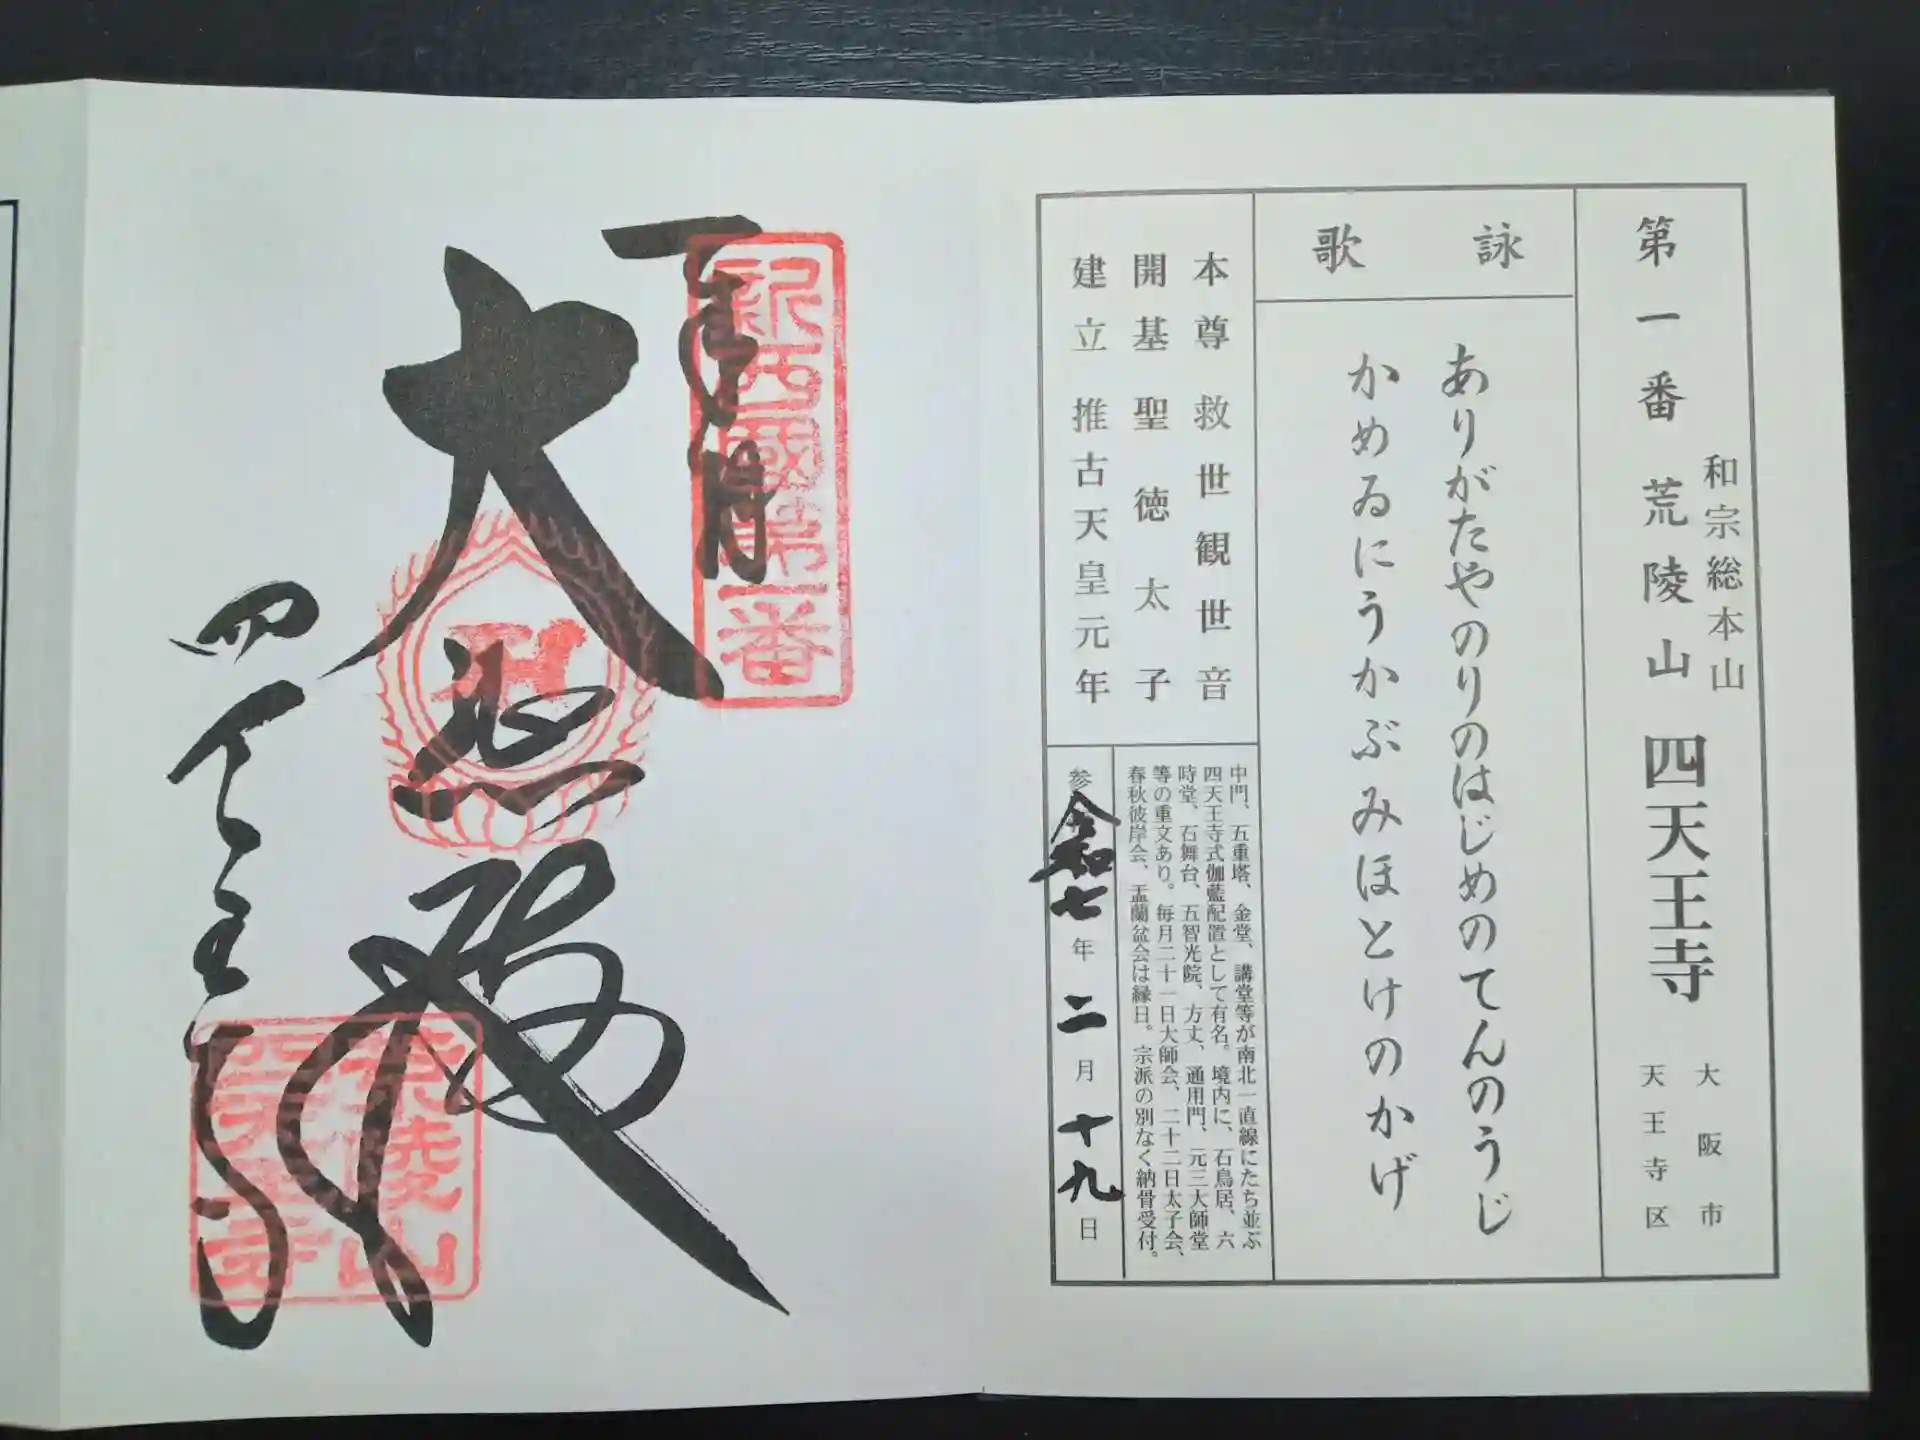 第一番 荒陵山 四天王寺
和宗総本山
大阪市
天王寺区
詠歌
ありがたやのりのはじめのてんのうじ
かめゐにうかぶみほとけのかげ
本尊 救世観世音
開基 聖徳太子
建立 推古天皇元年
中門、五重塔、金堂、講堂等が南北一直線にたち並ぶ
四天王寺式伽藍配置として有名。境内に、石鳥居、六
時堂、石舞台、五智光院、方丈、通用門、元三大師堂
等の重文あり。毎月二十一日大師会、二十二日太子会、
春秋彼岸会、盂蘭盆会は縁日。宗派の別なく納骨受付。
令和七年二月十九日
新西國第一番
大悲殿
四天王寺
荒陵山
四天王寺